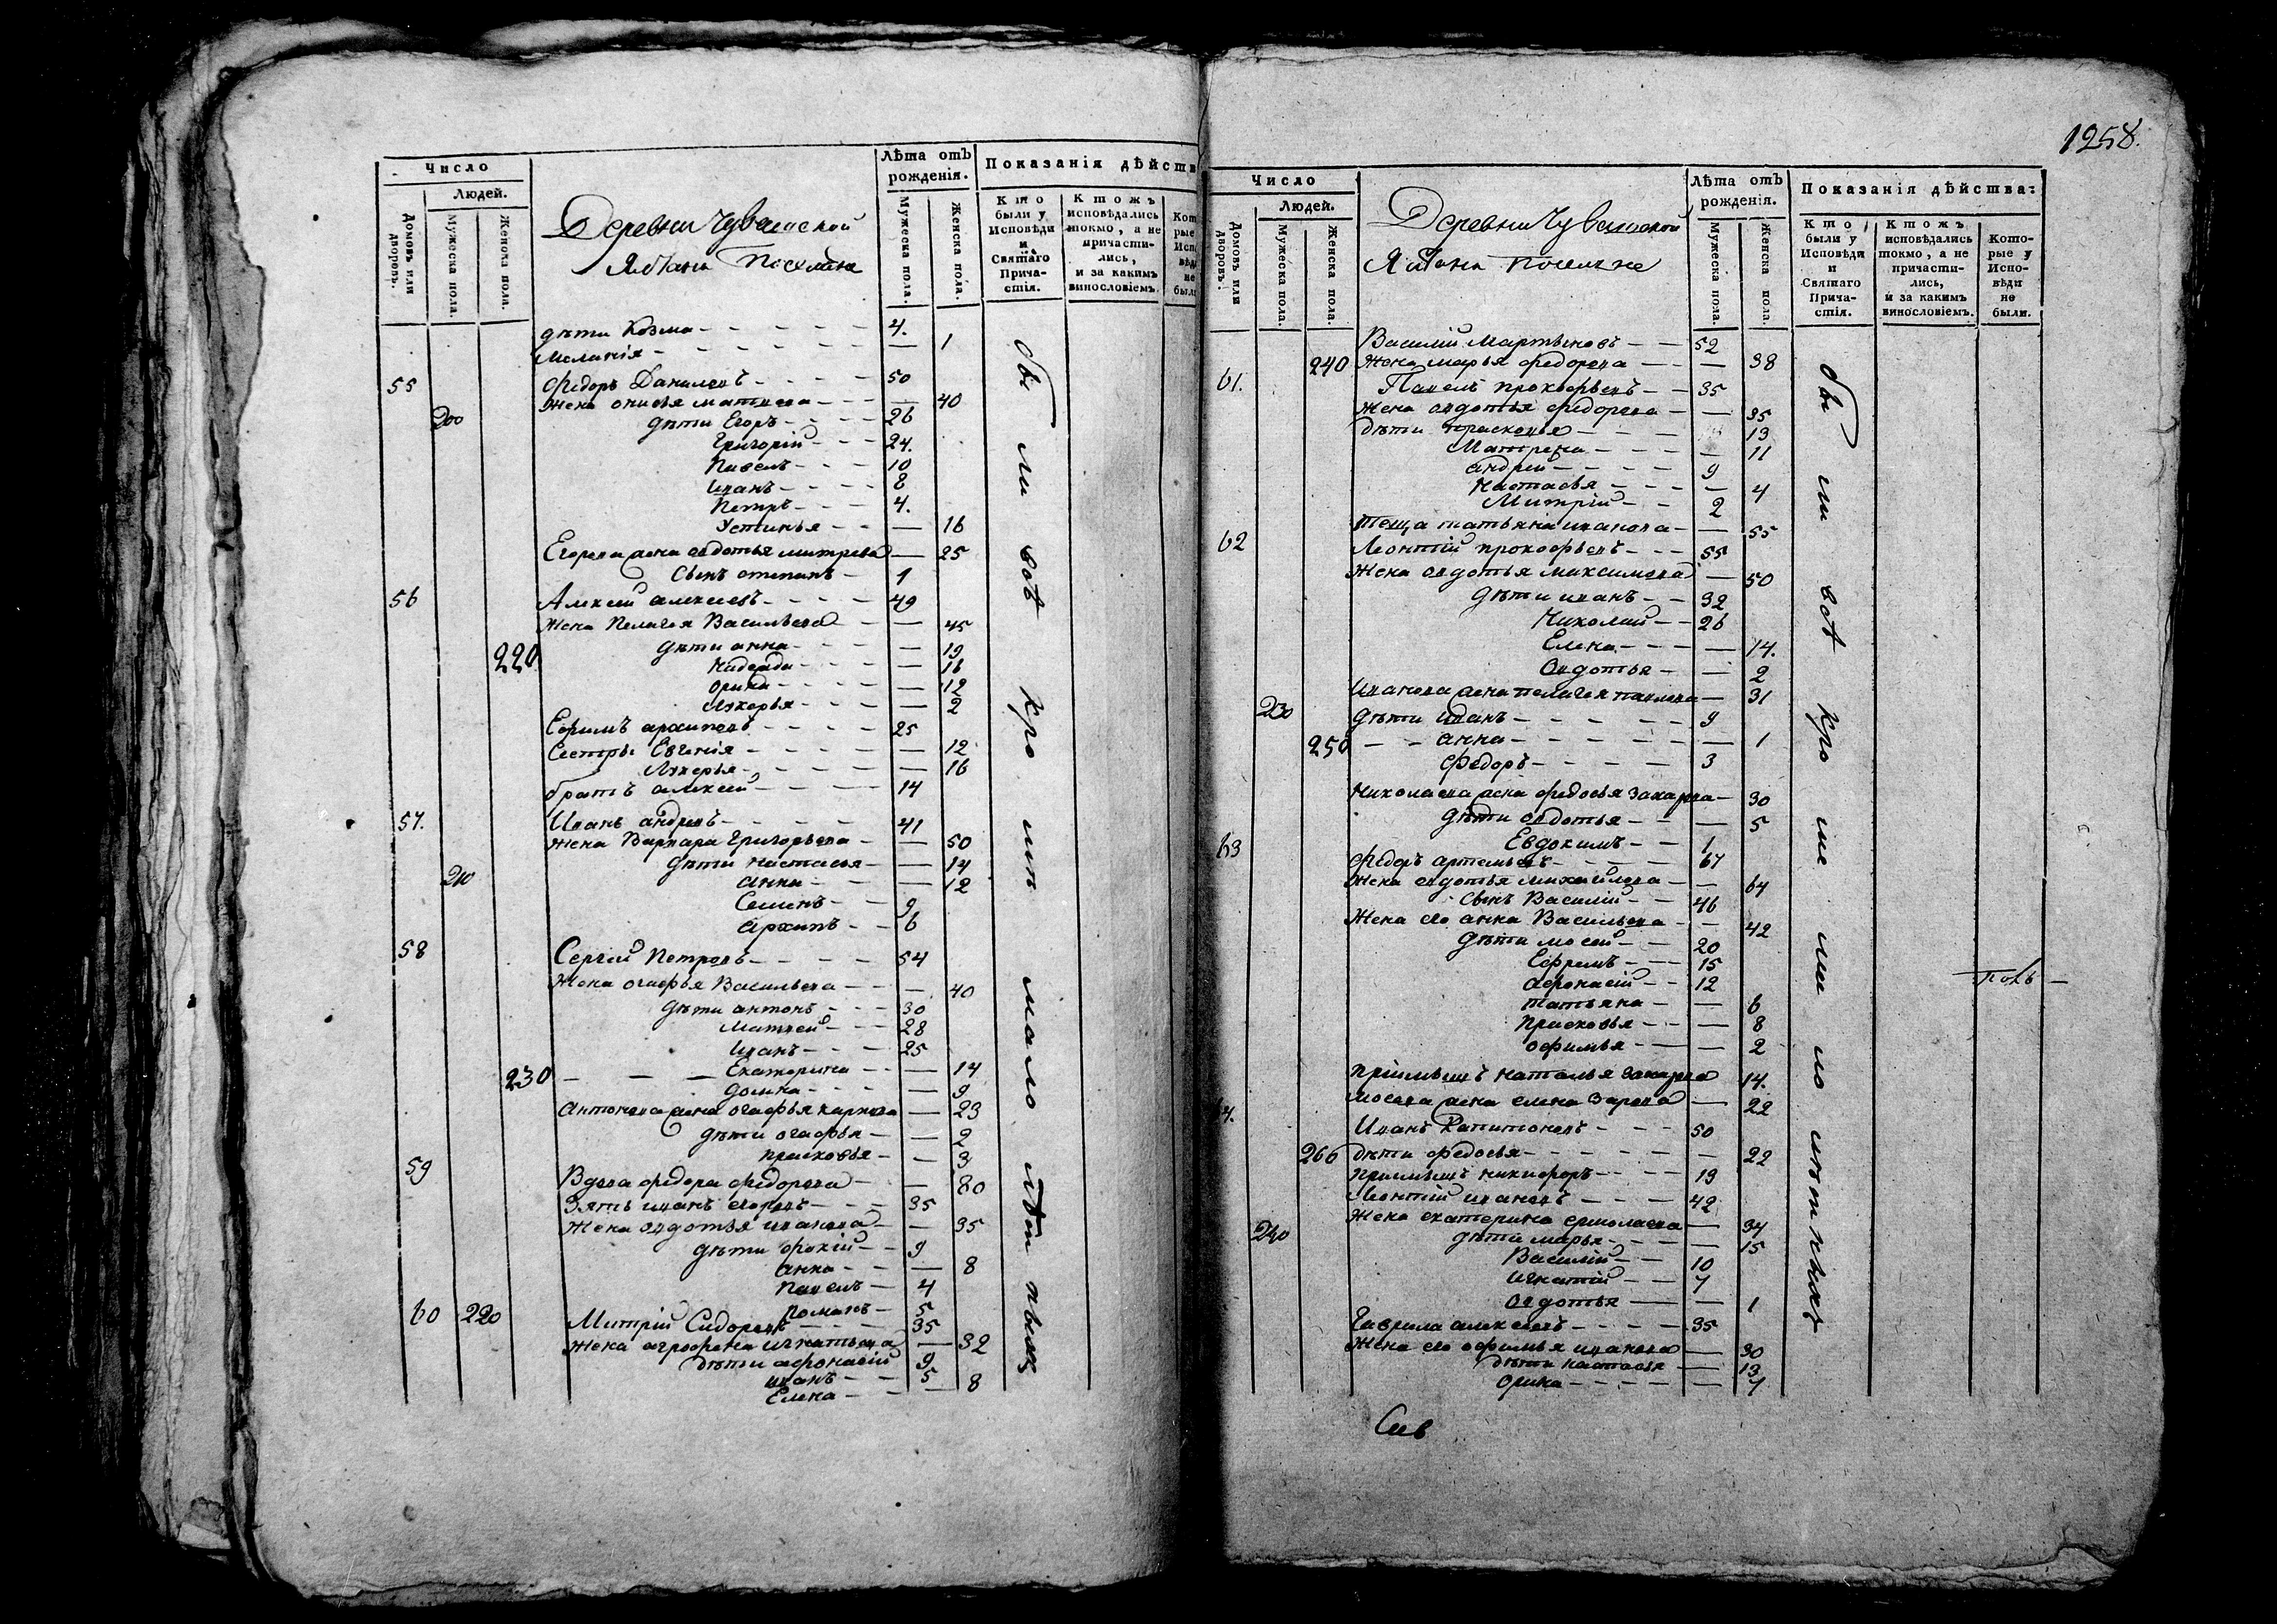 Число
Людей.
Домовъ или дворовъ.
Мужеска пола.
Женска пола.
Деревни Чувашской
Лѣта отъ рожденія.
Мужеска пола.
Женска пола.
Показанія дѣйств
Кто были у Исповѣди и Святаго Причастія.
Ктожъ исповѣдались токмо, а не причастились, и за какимъ винословіемъ.
дѣти Козма - 4.
Меланія - 1
55 Федоръ Данилевъ - 50
Жена 40
200 дѣти Егоръ - 26
Григорій - 24.
Павелъ - 10
Иванъ - 8
Петръ - 4.
Устинья - 16
Егорова жена авдотья митрева - 25
Сынъ степанъ - 1
56 Алексей алексеевъ - 49
Жена Пелагея Васильева - 45
220 дѣти анна - 19
Надежда - 16
орина - 12
Лукерья - 2
Ефимъ архиповъ - 25
Сестры Евгенія - 12
Лукерья - 16
братъ алексей - 14
57. Иванъ андревъ - 41
Жена Варвара Григорьева - 50
дѣти настасья - 14
210 анна - 12
Семенъ - 9
архипъ - 6
58 Сергей Петровъ - 54
Жена огафья Васильева - 40
дѣти антонъ - 30
Матвей - 28
Иванъ - 25
230 Екатерина - 14
домна - 9
Антонова жена огафья карпова - 23
дѣти огафья - 2
прасковья - 3
59 Вдова федора федорова - 80
Зять иванъ егоровъ - 35
Жена овдотья иванова - 35
дѣти 9
анна - 8
павелъ - 4
романъ - 5
60 220 Митрій Сидоровъ - 35
Жена агрофена игнатьева - 32
дѣти афонасій 9
иванъ - 5
Елена - 8
были всѣ кромѣ
1258.
Число
Людей.
Домовъ или дворовъ.
Мужеска пола.
Женска пола.
Деревни Чувашской
Лѣта отъ рожденія.
Мужеска пола.
Женска пола.
Показанія дѣйства:
Кто были у Исповѣди и Святаго Причастія.
Ктожъ исповѣдались токмо, а не причастились, и за какимъ винословіемъ.
Которые у Исповѣди не были.
Василій Мартыновъ - 52
240 Жена марья федорова - 38
61. Павелъ прокофьевъ - 35
Жена овдотья федорова - 35
дѣти прасковья - 13
Матрена - 11
андрей - 9
настасья - 4
Митрій - 2
теща татьяна иванова - 55
62 Леонтій прокофьевъ - 55
Жена овдотья максимова - 50
дѣти иванъ - 32
Николай - 26
Елена - 14.
Овдотья - 2
Иванова жена пелагея павлова - 31
230 дѣти иванъ - 9
250 анна - 1
федоръ - 3
Николаева жена федосья захарова - 30
дѣти овдотья - 5
Евдокимъ - 1
63 Федоръ артемьевъ - 67
Жена овдотья михайлова - 64
сынъ Василій - 46
Жена его анна Васильева - 42
дѣти мосей - 20
Ефремъ - 15
афонасій - 12
татьяна - 6
прасковья - 8
офимья - 2
пріимышъ наталья захарова 14.
Мосева жена елена 22
Иванъ Капитоновъ - 50
260 дѣти федосья - 22
пріимышъ никифоръ - 19
Леонтій ивановъ - 42
Жена екатерина ермолаева - 34
240 дѣти марья - 15
Василій - 10
игнатій - 7
Овдотья - 1
Гаврила алексеевъ - 35
Жена его офимья иванова - 30
дѣти настасья - 13
орина - 7
были всѣ кромѣ малолѣтныхъ